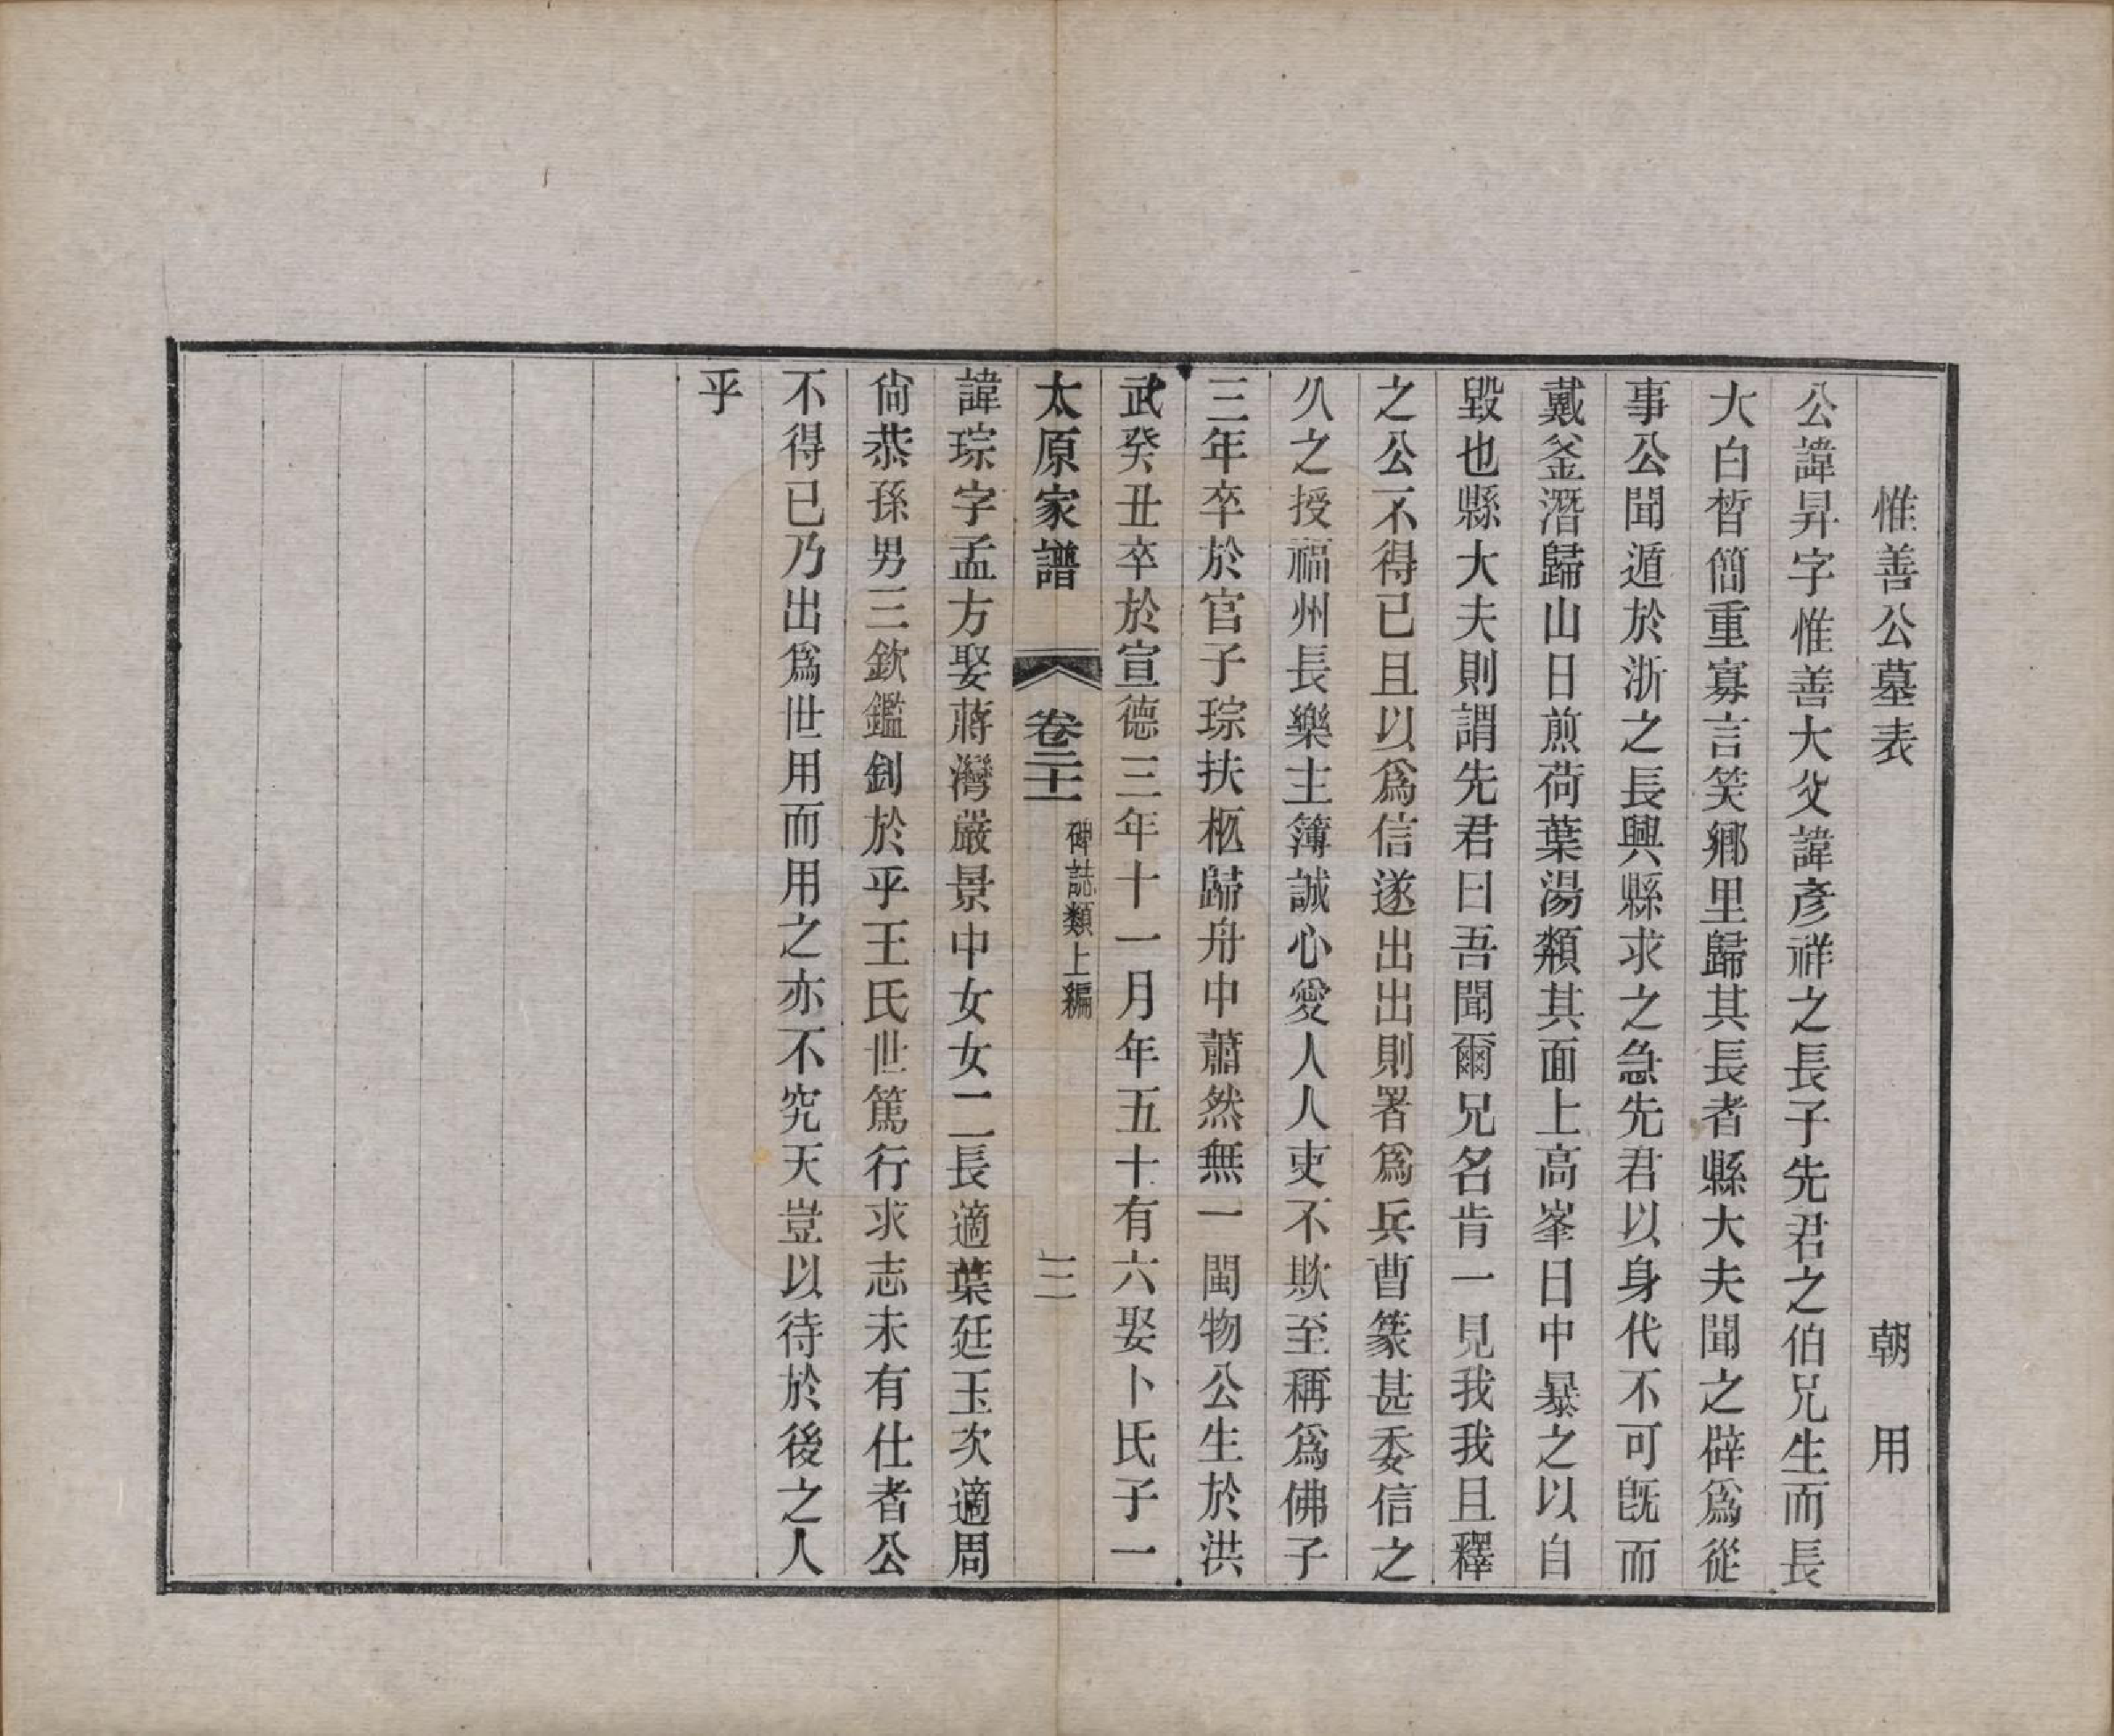 惟善公墓表 朝用
公諱昇字惟善大父諱彥祥之長子先君之伯兄生而長
大白晳簡重寡言笑鄉里歸其長者縣大夫聞之辟爲從
事公聞遁於浙之長興縣求之急先君以身代不可旣而
戴釜潛歸山日煎荷葉湯纇其面上高峯日中暴之以自
毀也縣大夫則謂先君曰吾聞爾兄名肯一見我我且釋
之公不得已且以爲信遂出出則署爲兵曹篆甚委信之
久之授福州長樂主簿誠心愛人人吏不欺至稱爲佛子
三年卒於官子琮扶柩歸舟中蕭然無一閩物公生於洪
武癸丑卒於宣德三年十一月年五十有六娶卜氏子一
太原家譜 卷二十一 碑誌類上編 三
諱琮字孟方娶蔣灣嚴景中女女二長適葉廷玉次適周
尙恭孫男三欽鑑釗於乎王氏世篤行求志未有仕者公
不得已乃出爲世用而用之亦不究天豈以待於後之人
乎